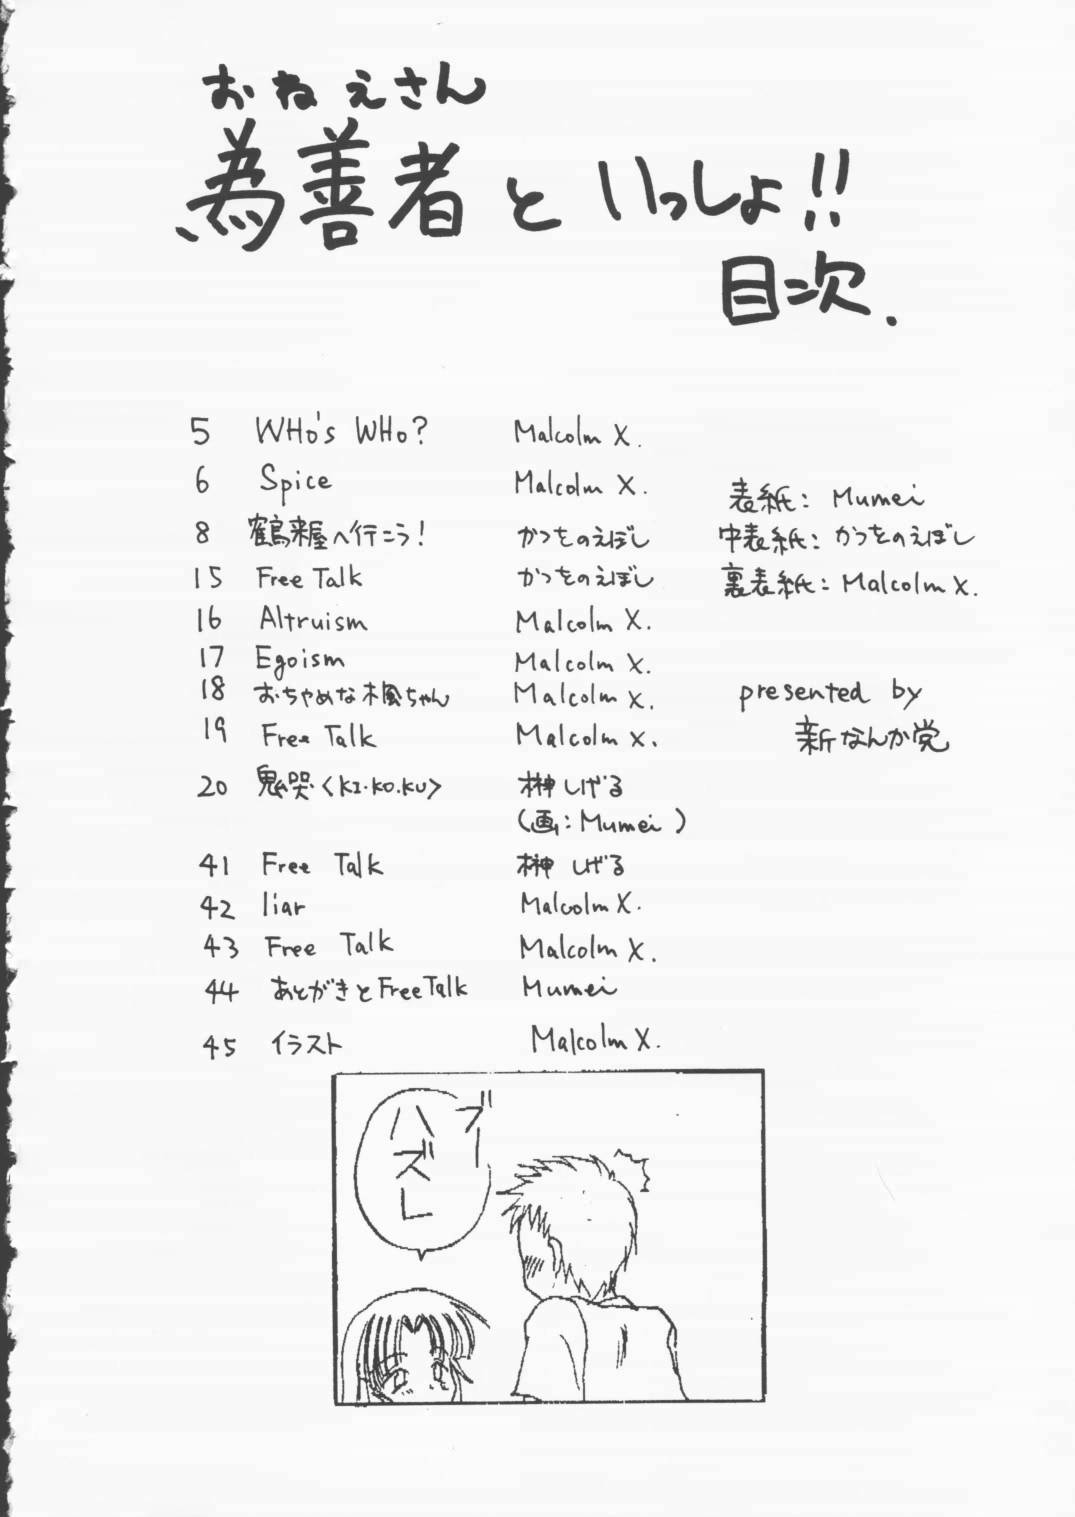 おねえさん
為善者といっしょ!!
目次.
5 WHo's WHo? Malcolm X.
6 Spice Malcolm X.
8 鶴来屋へ行こう! かつをのえぼし
15 Free Talk かつをのえぼし
16 Altruism Malcolm X.
17 Egoism Malcolm X.
18 おちゃめな楓ちゃん Malcolm X.
19 Free Talk Malcolm X.
20 鬼哭<KI・KO.KU> 榊しげる
(画:Mumei)
41 Free Talk 榊しげる
42 liar Malcolm X.
43 Free Talk Malcolm X.
44 あとがきとFree Talk Mumei
45 イラスト Malcolm X.
表紙: Mumei
中表紙: かつをのえぼし
裏表紙: Malcolm X.
presented by
新なんか党
ブー
ハズレ